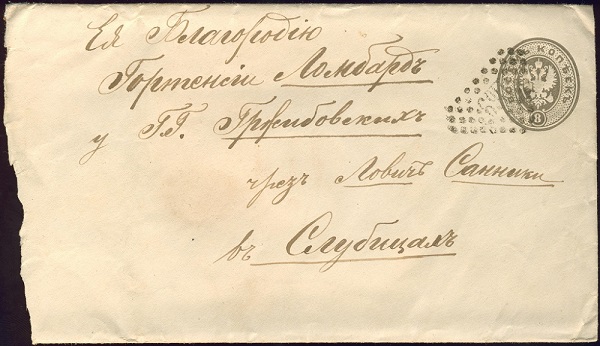 Ея Благородію
Гортенсіи Ломбардъ
у ГГ. Гржибовскихъ
чрезъ Ловичъ Санники
въ Слубицахъ
КОПѢЕКЪ
8